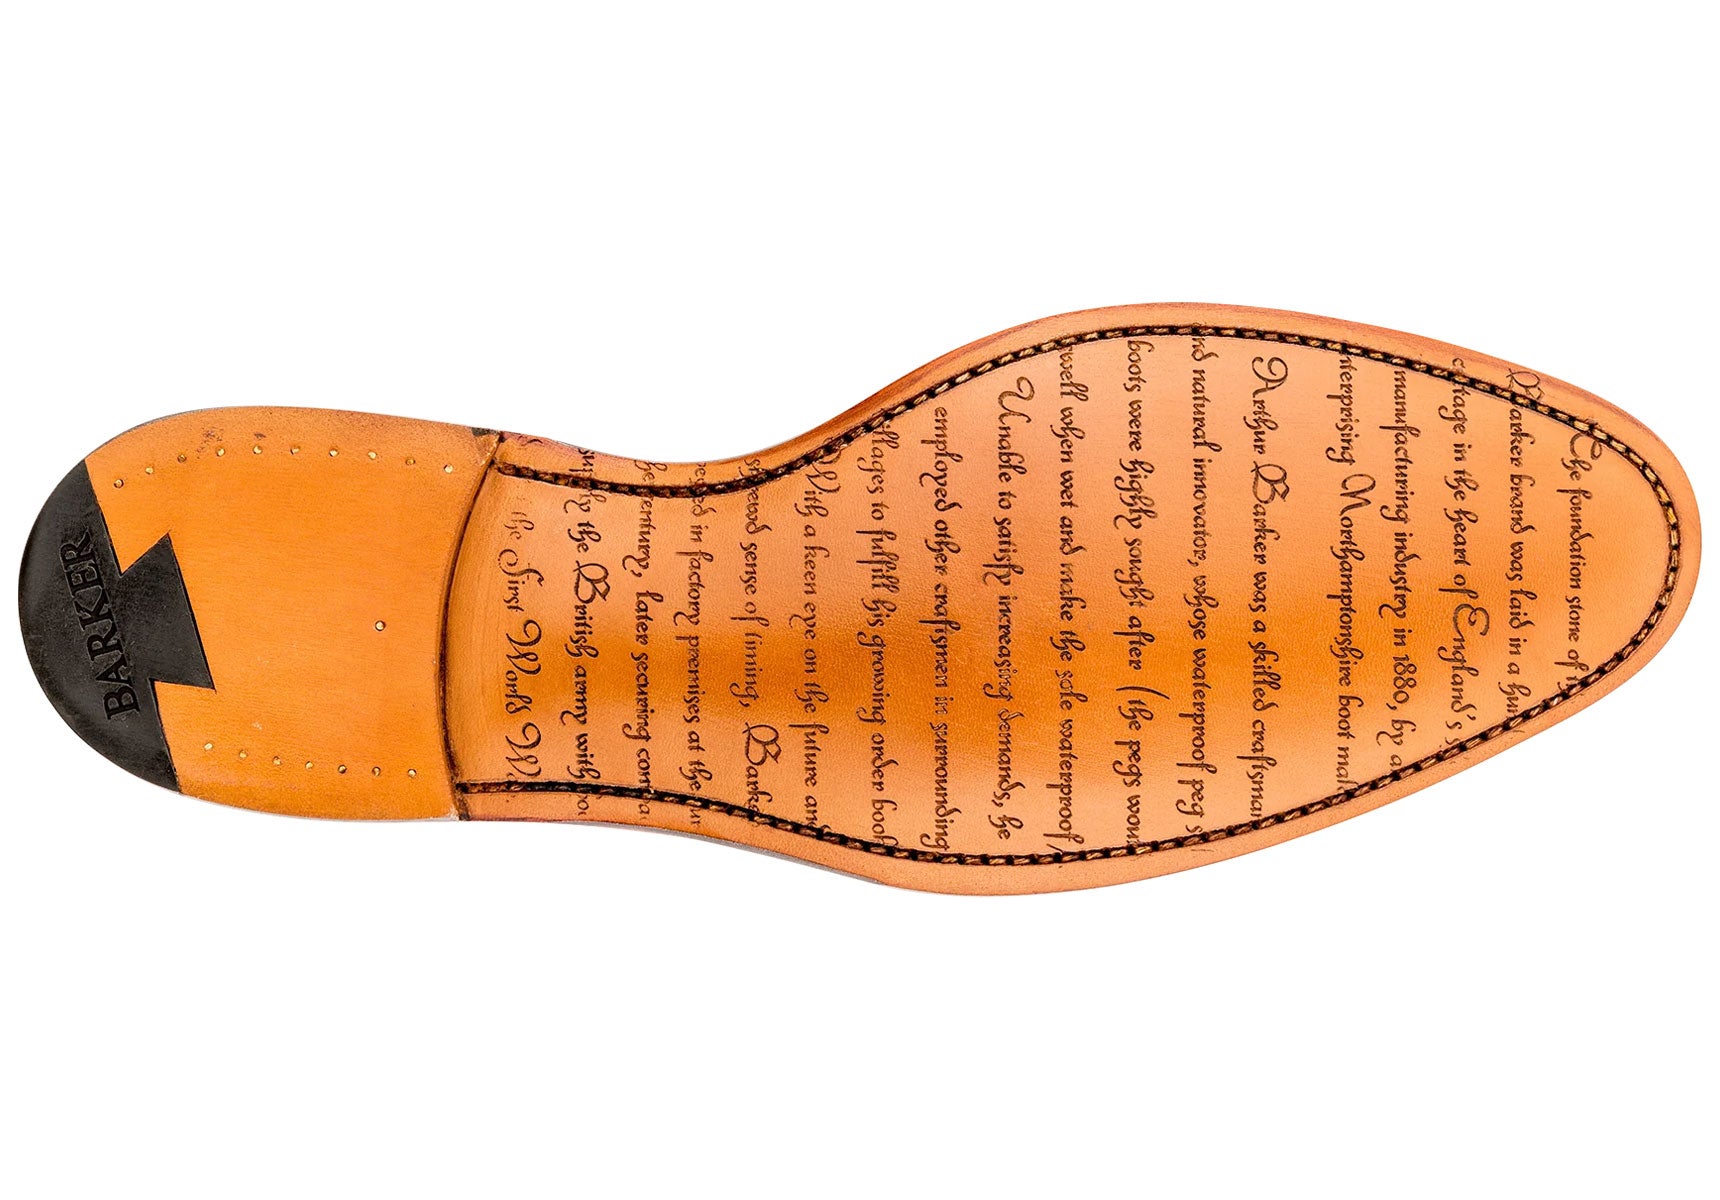 The foundation stone of
Barker brand was laid in a
cottage in the heart of England's
manufacturing industry in 1880, by a
nterprising Northamptonshire boot mak
Arthur Barker was a skilled craftsman
nd natural innovator, whose waterproof peg s
boots were highly sought after (the pegs woul
well when wet and make the sole waterproof)
Unable to satisfy increasing demands, he
employed other craftsmen in surrounding
illages to fulfill his growing order book
With a keen eye on the future and
shrewd sense of timing, Barke
in factory premises at the
century, later securing con
supply the British army with
the First World W
BARKER